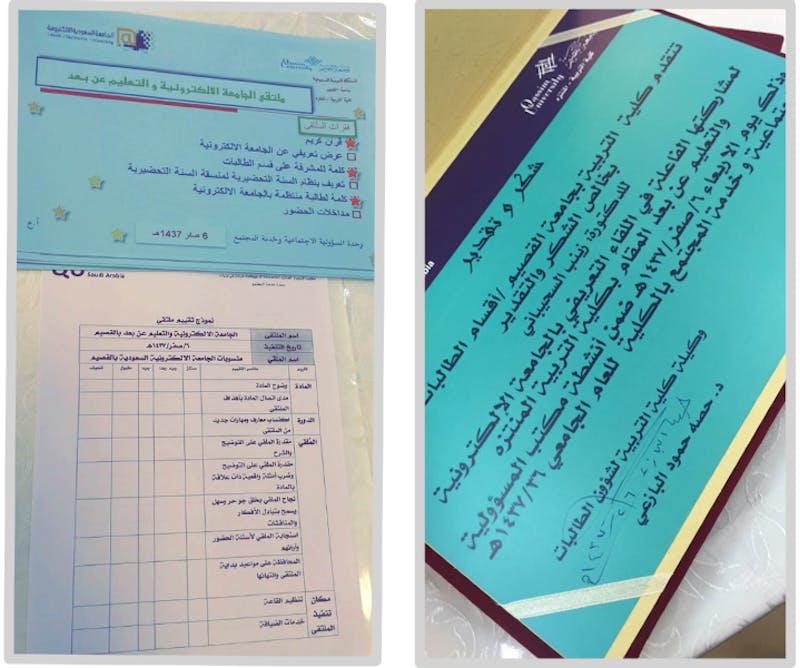 الجامعة السعودية الالكترونية
المملكة العربية السعودية
جامعة القصيم
كلية التربية - المنتزه
ملتقى الجامعة الالكترونية و التعليم عن بعد
فقرات الملتقى
قرآن كريم
عرض تعريفي عن الجامعة الالكترونية
كلمة للمشرفة على قسم الطالبات
تعريف بنظام السنة التحضيرية لمنسقة السنة التحضيرية
كلمة لطالبة منتظمة بالجامعة الالكترونية
مداخلات الحضور
6 صفر 1437هـ
وحدة المسؤولية الاجتماعية وخدمة المجتمع
QU
Saudi Arabia
نموذج تقييم ملتقى
اسم الملتقى الجامعة الالكترونية والتعليم عن بعد بالقصيم
تاريخ التنفيذ ٦/صفر/١٤٣٧هـ
اسم الملقي منسوبات الجامعة الالكترونية السعودية بالقصيم
عناصر التقييم ممتاز جيد جدا جيد مقبول ضعيف
المادة وضوح المادة
مدى اتصال المادة بأهداف
الملتقى
الدورة اكتساب معارف ومهارات جديدة
من الملتقى
الملقي مقدرة الملقي على التوضيح
والشرح
مقدرة الملقي على التوضيح
وضرب أمثلة واقعية ذات علاقة
بالمادة
نجاح الملقي بخلق جو حر وسهل
يسمح بتبادل الأفكار
والمناقشات
استجابة الملقي لأسئلة الحضور
وآرائهم
المحافظة على مواعيد بداية
الملتقى وانتهائها
مكان تنفيذ الملتقى تنظيم القاعة
خدمات الضيافة
Qassim University
كلية التربية - المنتزه
شكر و تقدير
تتقدم كلية التربية بجامعة القصيم /أقسام الطالبات
بخالص الشكر والتقدير
للدكتورة زينب السحيباني
لمشاركتها الفاعلة في اللقاء التعريفي بالجامعة الإلكترونية
والتعليم عن بعد المقام بكلية التربية المنتزه
وذلك يوم الاربعاء ٦/صفر/١٤٣٧هـ ضمن أنشطة مكتب المسؤولية
الاجتماعية و خدمة المجتمع بالكلية للعام الجامعي ١٤٣٧/٣٦هـ
وكيلة كلية التربية لشؤون الطالبات
د. حصه حمود البازعي